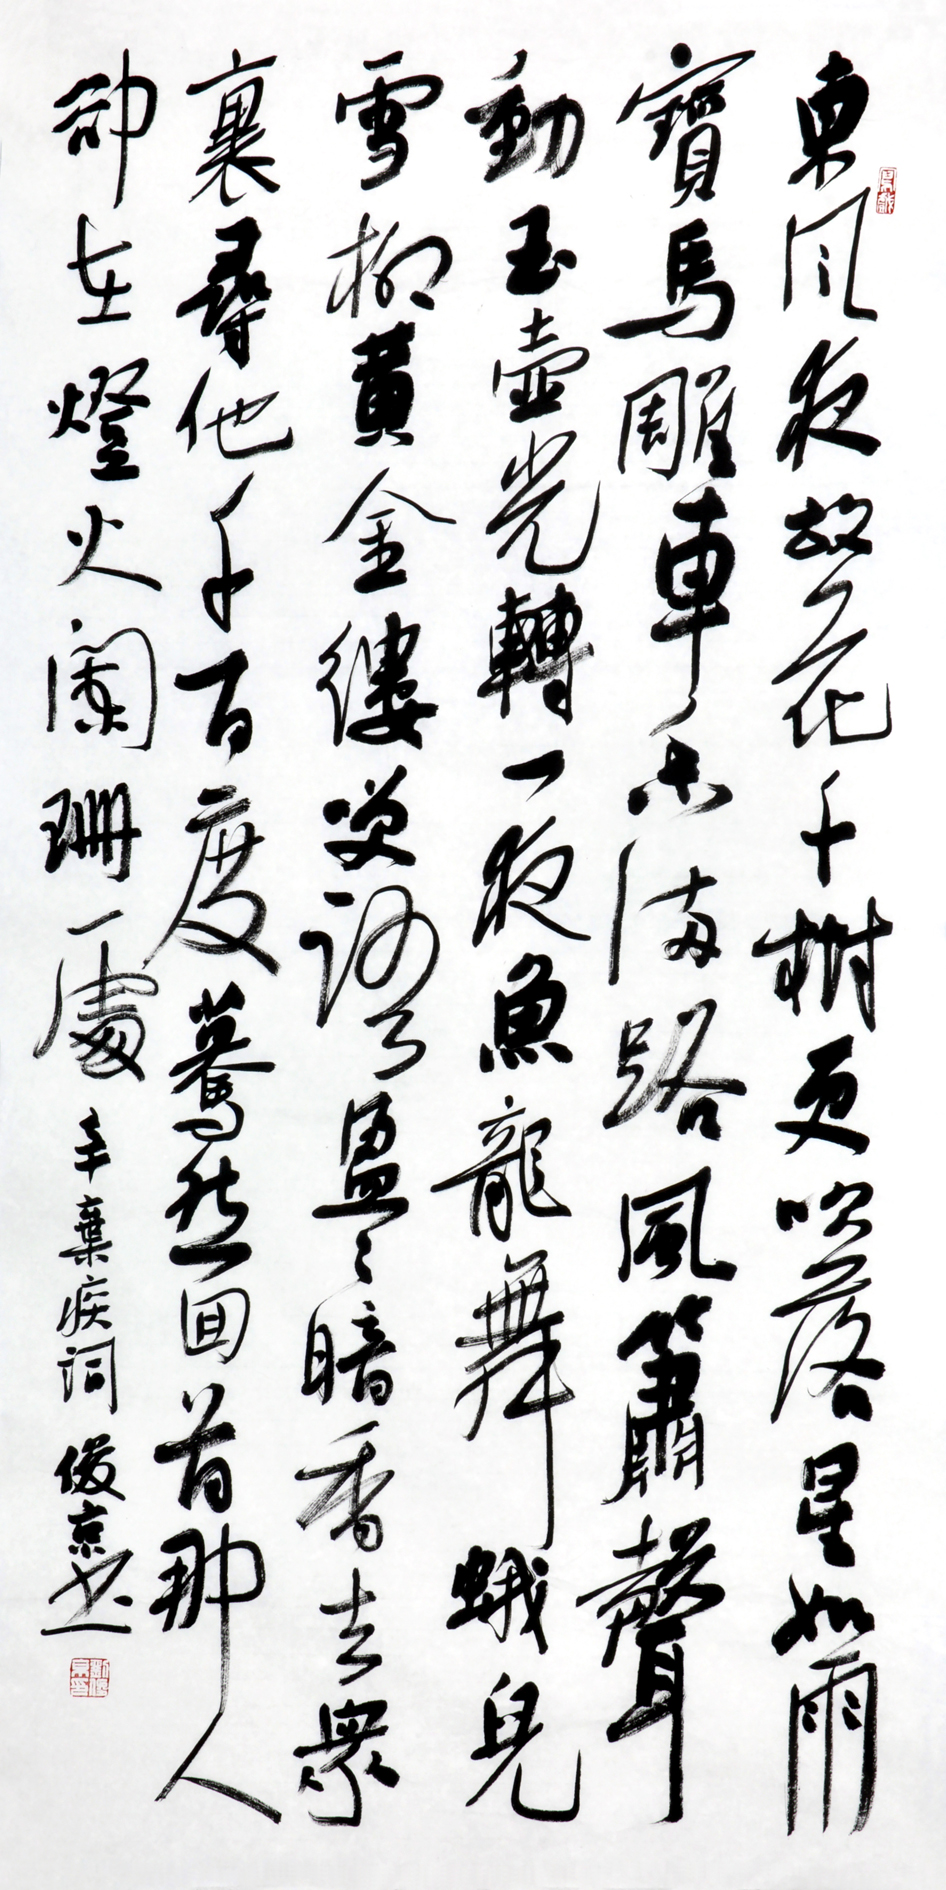 東风夜放花千樹更吹落星如雨
寶馬雕車香满路風簫聲
動玉壺光轉一夜魚龍舞蛾兒
雪柳黄金縷笑語盈々暗香去衆
裏尋他千百度驀然回首那人
卻在燈火闌珊處 辛棄疾詞 俊京书